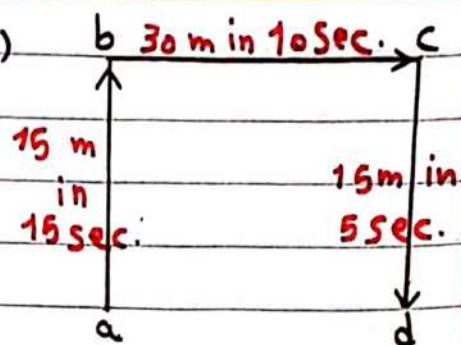 )
b 30 m in 10 Sec. c
15 m
in
15 sec.
15m in
5 sec.
a
d